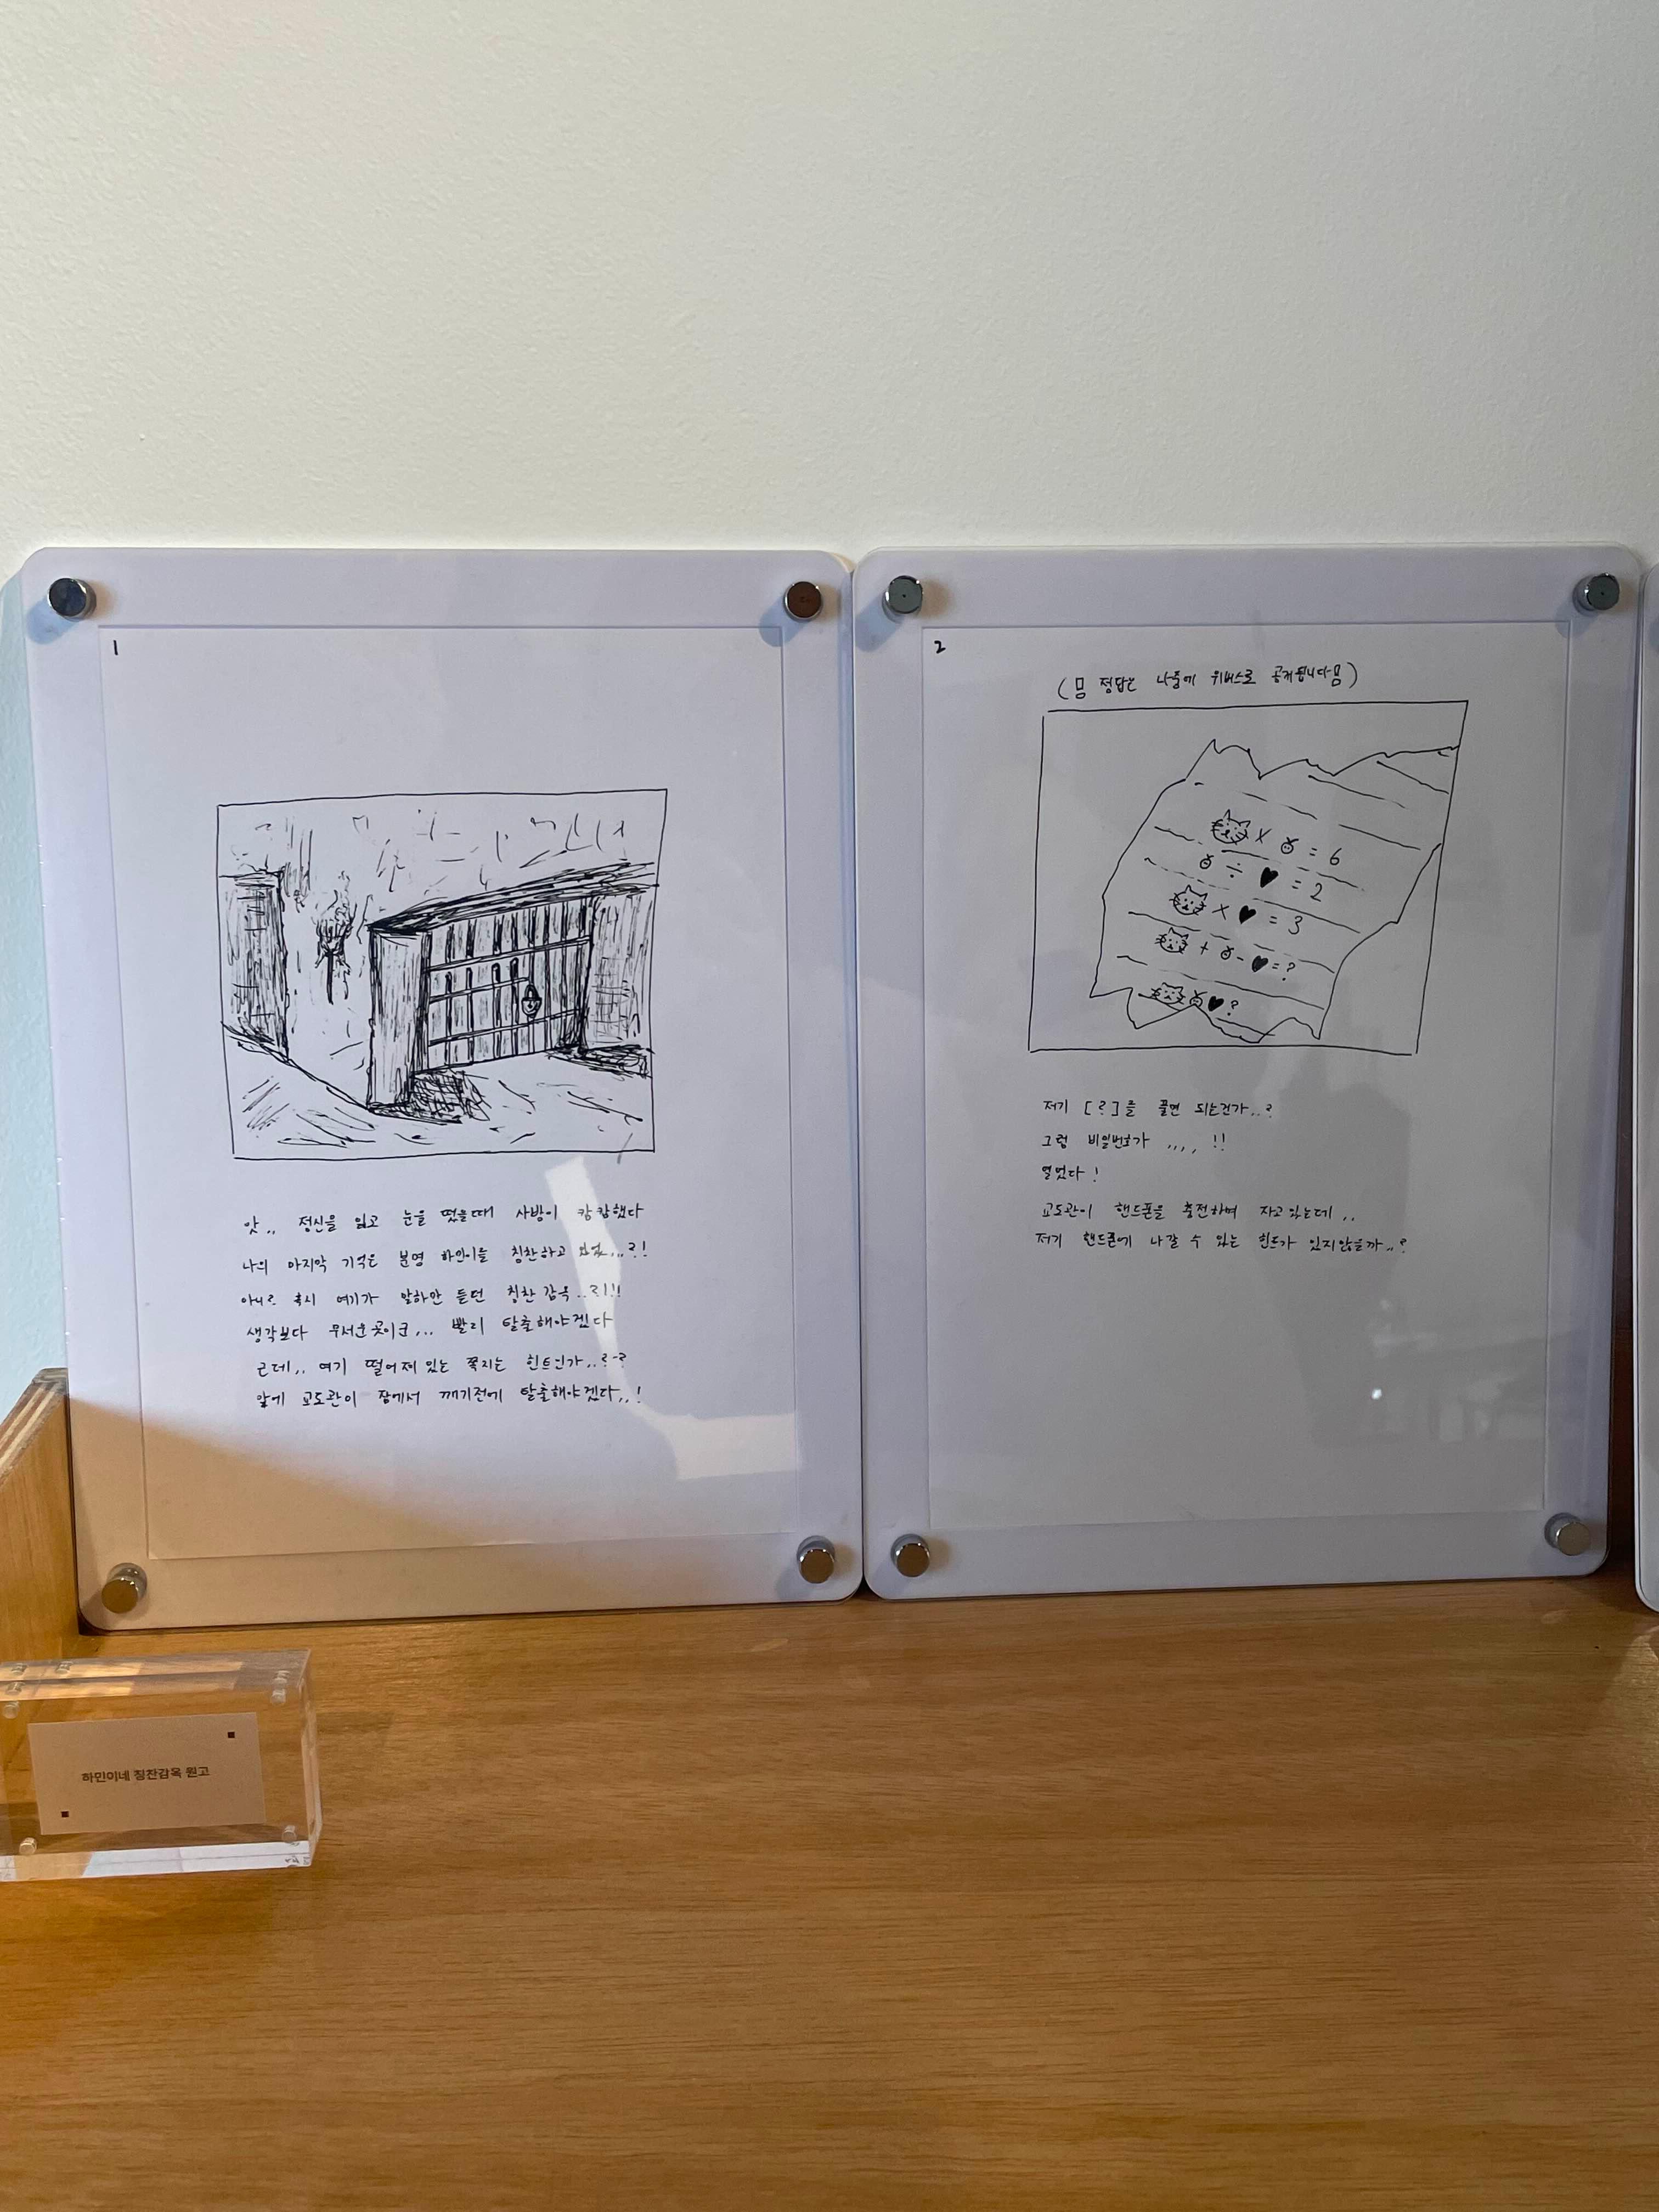 1
앗,, 정신을 잃고 눈을 떴을때 사방이 캄캄했다
나의 마지막 기억은 분명 하민이를 칭찬하고 있었...?!
아니? 혹시 여기가 말하만 듣던 칭찬 감옥..?!!!
생각보다 무서운 곳이군... 빨리 탈출해야겠다
근데,, 여기 떨어져 있는 쪽지는 힌트인가,,?-?
앞에 교도관이 잠에서 깨기전에 탈출해야겠다,,!
2
(정답은 나중에 위버스로 공개됩니다)
× = 6
÷ ♥ = 2
× ♥ = 3
+ - ♥ = ?
♥ ?
저기 [?]를 풀면 되는건가..?
그럼 비밀번호가 ,,,, !!
열었다!
교도관이 핸드폰을 충전하며 자고있는데,,
저기 핸드폰에 나갈 수 있는 힌트가 있지않을까,,?
하민이네 칭찬감옥 원고